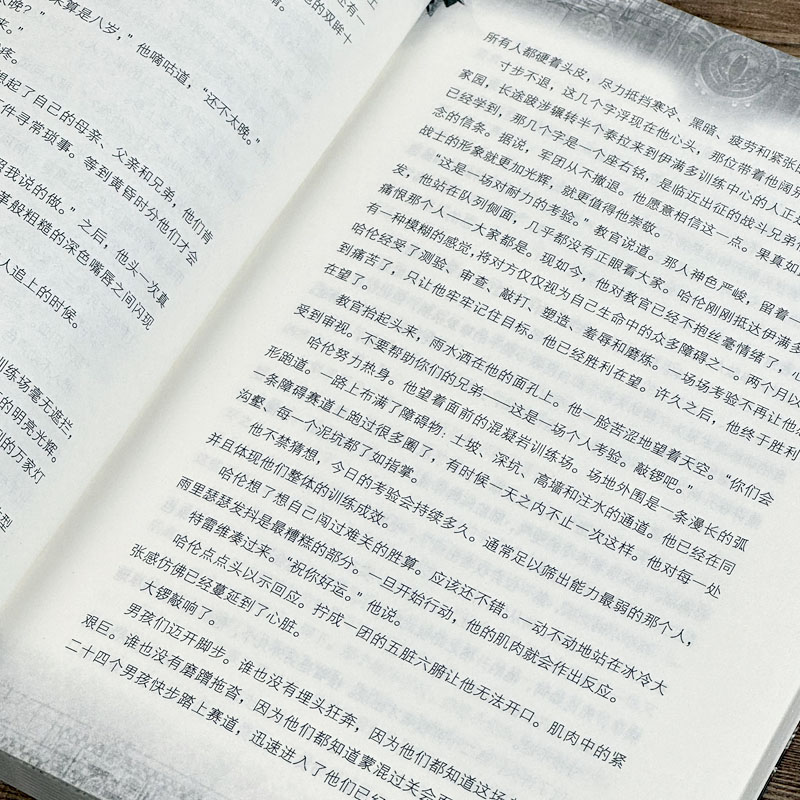 上
还有一
的双眸十
算是八岁，”他嘀咕道，“还不太晚。”
太晚？”
来。”
疼。
想起了自己的母亲、父亲和兄弟，他们肯
件寻常琐事。等到黄昏时分他们才会
照我说的做。”之后，他头一次真
般粗糙的深色嘴唇之间闪现
人追上的时候。
训练场毫无遮拦，
的明亮光辉。
别的万家灯
型
所有人都硬着头皮，尽力抵挡寒冷、黑暗、疲劳和紧张
寸步不退，这几个字浮现在他心头，那位带着他阔别
家园，长途跋涉辗转半个泰拉来到伊满多训练中心的人正
已经学到，那几个字是一个座右铭，是临近出征的战斗兄弟
念的信条。据说，军团从不撤退。他愿意相信这一点。果真如
战士的形象就更加光辉，就更值得他崇敬。
“这是一场对耐力的考验。”教官说道。那人神色严峻，留着一
发，他站在队列侧面，几乎都没有正眼看大家。哈伦刚刚抵达伊满多
痛恨那个人——大家都是。现如今，他对教官已经不抱丝毫情绪了，心
有一种模糊的感觉，将对方仅仅视为自己生命中的众多障碍之一。两个月以
哈伦经受了测验、审查、敲打、塑造、羞辱和磨炼。一场场考验不再让他
到痛苦了，只让他牢牢记住目标。他已经胜利在望。许久之后，他终于胜利
在望了。
教官抬起头来，雨水洒在他的面孔上。他一脸苦涩地望着天空。“你们会
受到审视。不要帮助你们的兄弟——这是一场个人考验。敲锣吧。”
哈伦努力热身。他望着面前的混凝岩训练场。场地外围是一条漫长的弧
形跑道。一路上布满了障碍物：土坡、深坑、高墙和注水的通道。他已经在同
一条障碍赛道上跑过很多圈了，有时候一天之内不止一次这样。他对每一处
沟壑、每一个泥坑都了如指掌。
他不禁猜想，今日的考验会持续多久。通常足以筛出能力最弱的那个人，
并且体现他们整体的训练成效。
哈伦想了想自己闯过难关的胜算。应该还不错。一动不动地站在冰冷大
雨里瑟瑟发抖是最糟糕的部分。一旦开始行动，他的肌肉就会作出反应。
特雷维凑过来。“祝你好运。”他说。
哈伦点点头以示回应。拧成一团的五脏六腑让他无法开口。肌肉中的紧
张感仿佛已经蔓延到了心脏。
大锣敲响了。
男孩们迈开脚步。谁也没有埋头狂奔，因为他们都知道这场
艰巨。谁也没有磨蹭拖沓，因为他们都知道蒙混过关会
二十四个男孩快步踏上赛道，迅速进入了他们已